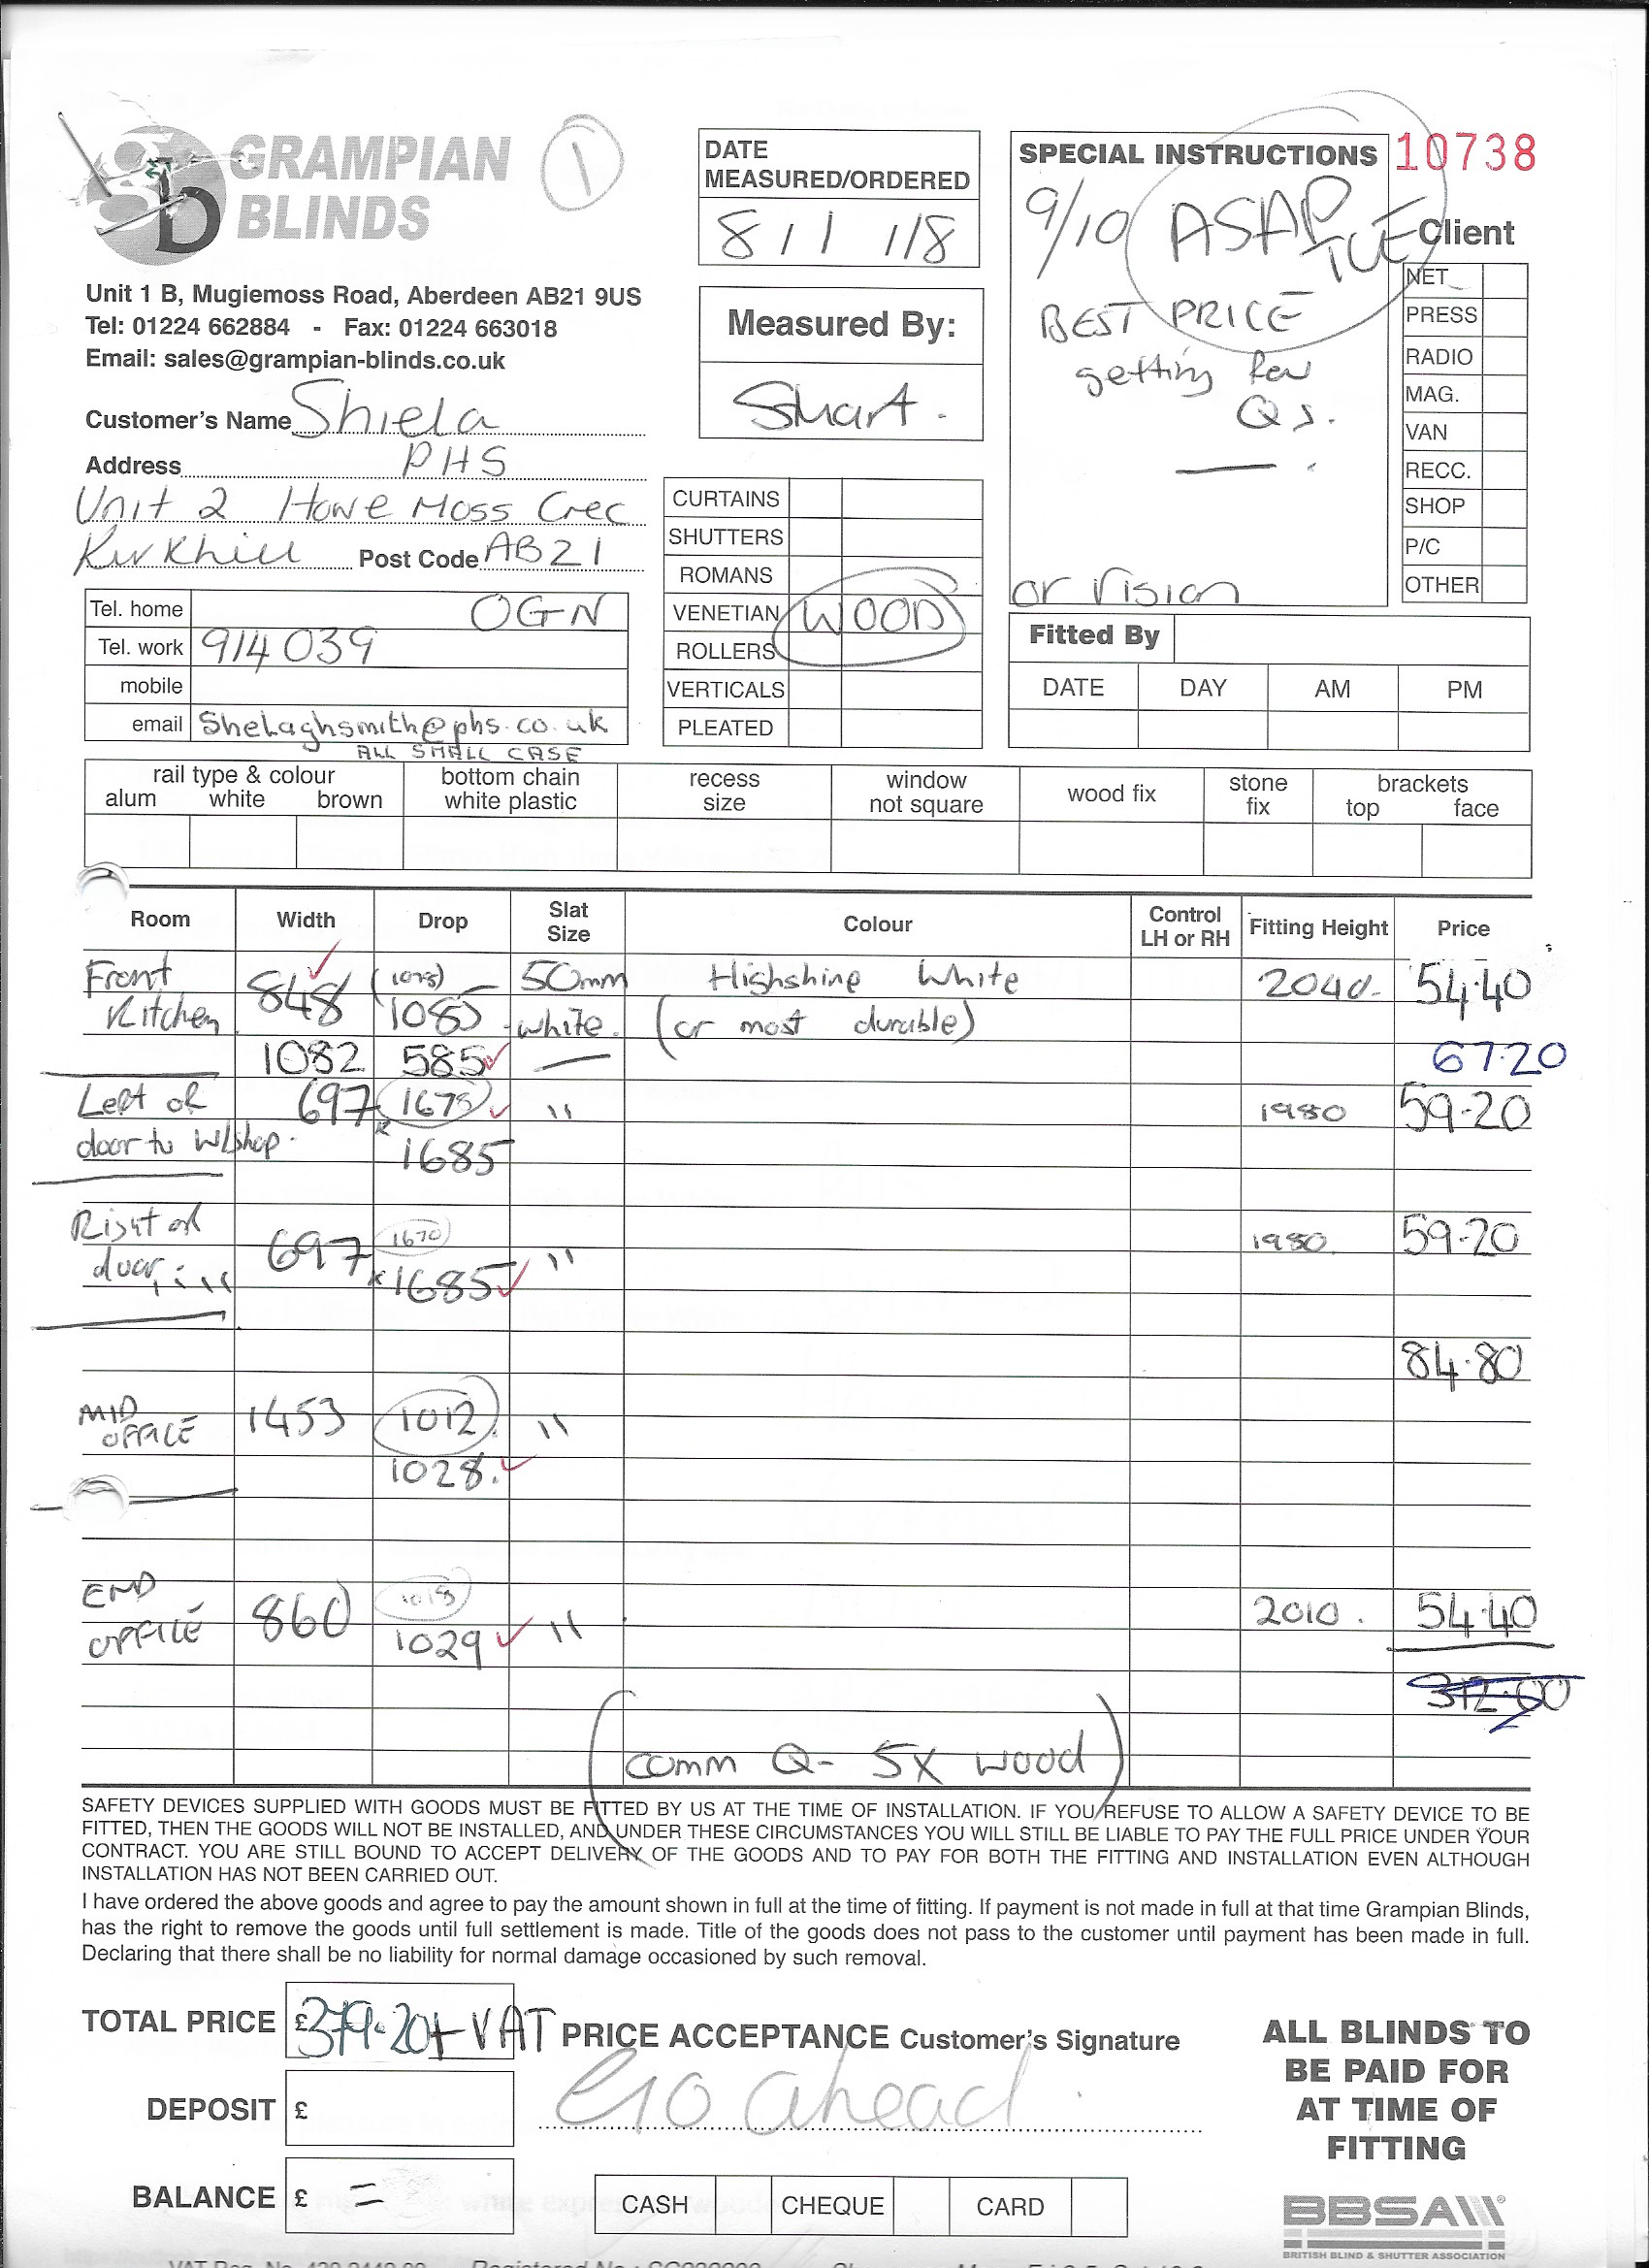 GRAMPIAN
BLINDS
1
Unit 1 B, Mugiemoss Road, Aberdeen AB21 9US
Tel: 01224 662884 - Fax: 01224 663018
Email: sales@grampian-blinds.co.uk
DATE
MEASURED/ORDERED
8 / 1 1/8
Measured By:
Stuart.
SPECIAL INSTRUCTIONS
10738
9/10 ASAP
TUE
BEST PRICE
getting few
Qs.
or Vision
Client
NET
PRESS
RADIO
MAG.
VAN
RECC.
SHOP
P/C
OTHER
Customer's Name Shiela
Address PHS
Unit 2 Howe Moss Cres
Kirkhill Post Code AB21
Tel. home OGN
Tel. work 914039
mobile
email Shelaghsmith@phs.co.uk
ALL SMALL CASE
CURTAINS
SHUTTERS
ROMANS
VENETIAN WOOD
ROLLERS
VERTICALS
PLEATED
Fitted By
DATE DAY AM PM
rail type & colour
alum white brown
bottom chain
white plastic
recess
size
window
not square
wood fix
stone
fix
brackets
top face
Room Width Drop Slat Size Colour Control LH or RH Fitting Height Price
Front 848 (1075) 50mm Highshine White 2040 54.40
Kitchen 1085 white. (or most durable)
1082 585 67.20
Left of 697 x 1675 " 1980 59.20
door to W/shop. 1685
Right of 697 1670 " 1980 59.20
door " " x 1685
84.80
MID 1453 1012 "
OFFICE
1028.
END 860 1018 2010. 54.40
OFFICE 1029 "
312.00
(comm Q- 5x wood)
SAFETY DEVICES SUPPLIED WITH GOODS MUST BE FITTED BY US AT THE TIME OF INSTALLATION. IF YOU REFUSE TO ALLOW A SAFETY DEVICE TO BE
FITTED, THEN THE GOODS WILL NOT BE INSTALLED, AND UNDER THESE CIRCUMSTANCES YOU WILL STILL BE LIABLE TO PAY THE FULL PRICE UNDER YOUR
CONTRACT. YOU ARE STILL BOUND TO ACCEPT DELIVERY OF THE GOODS AND TO PAY FOR BOTH THE FITTING AND INSTALLATION EVEN ALTHOUGH
INSTALLATION HAS NOT BEEN CARRIED OUT.
I have ordered the above goods and agree to pay the amount shown in full at the time of fitting. If payment is not made in full at that time Grampian Blinds,
has the right to remove the goods until full settlement is made. Title of the goods does not pass to the customer until payment has been made in full.
Declaring that there shall be no liability for normal damage occasioned by such removal.
TOTAL PRICE £379.20 + VAT
PRICE ACCEPTANCE Customer's Signature
Go ahead
DEPOSIT £
BALANCE £ =
CASH CHEQUE CARD
ALL BLINDS TO
BE PAID FOR
AT TIME OF
FITTING
BBSA
BRITISH BLIND & SHUTTER ASSOCIATION